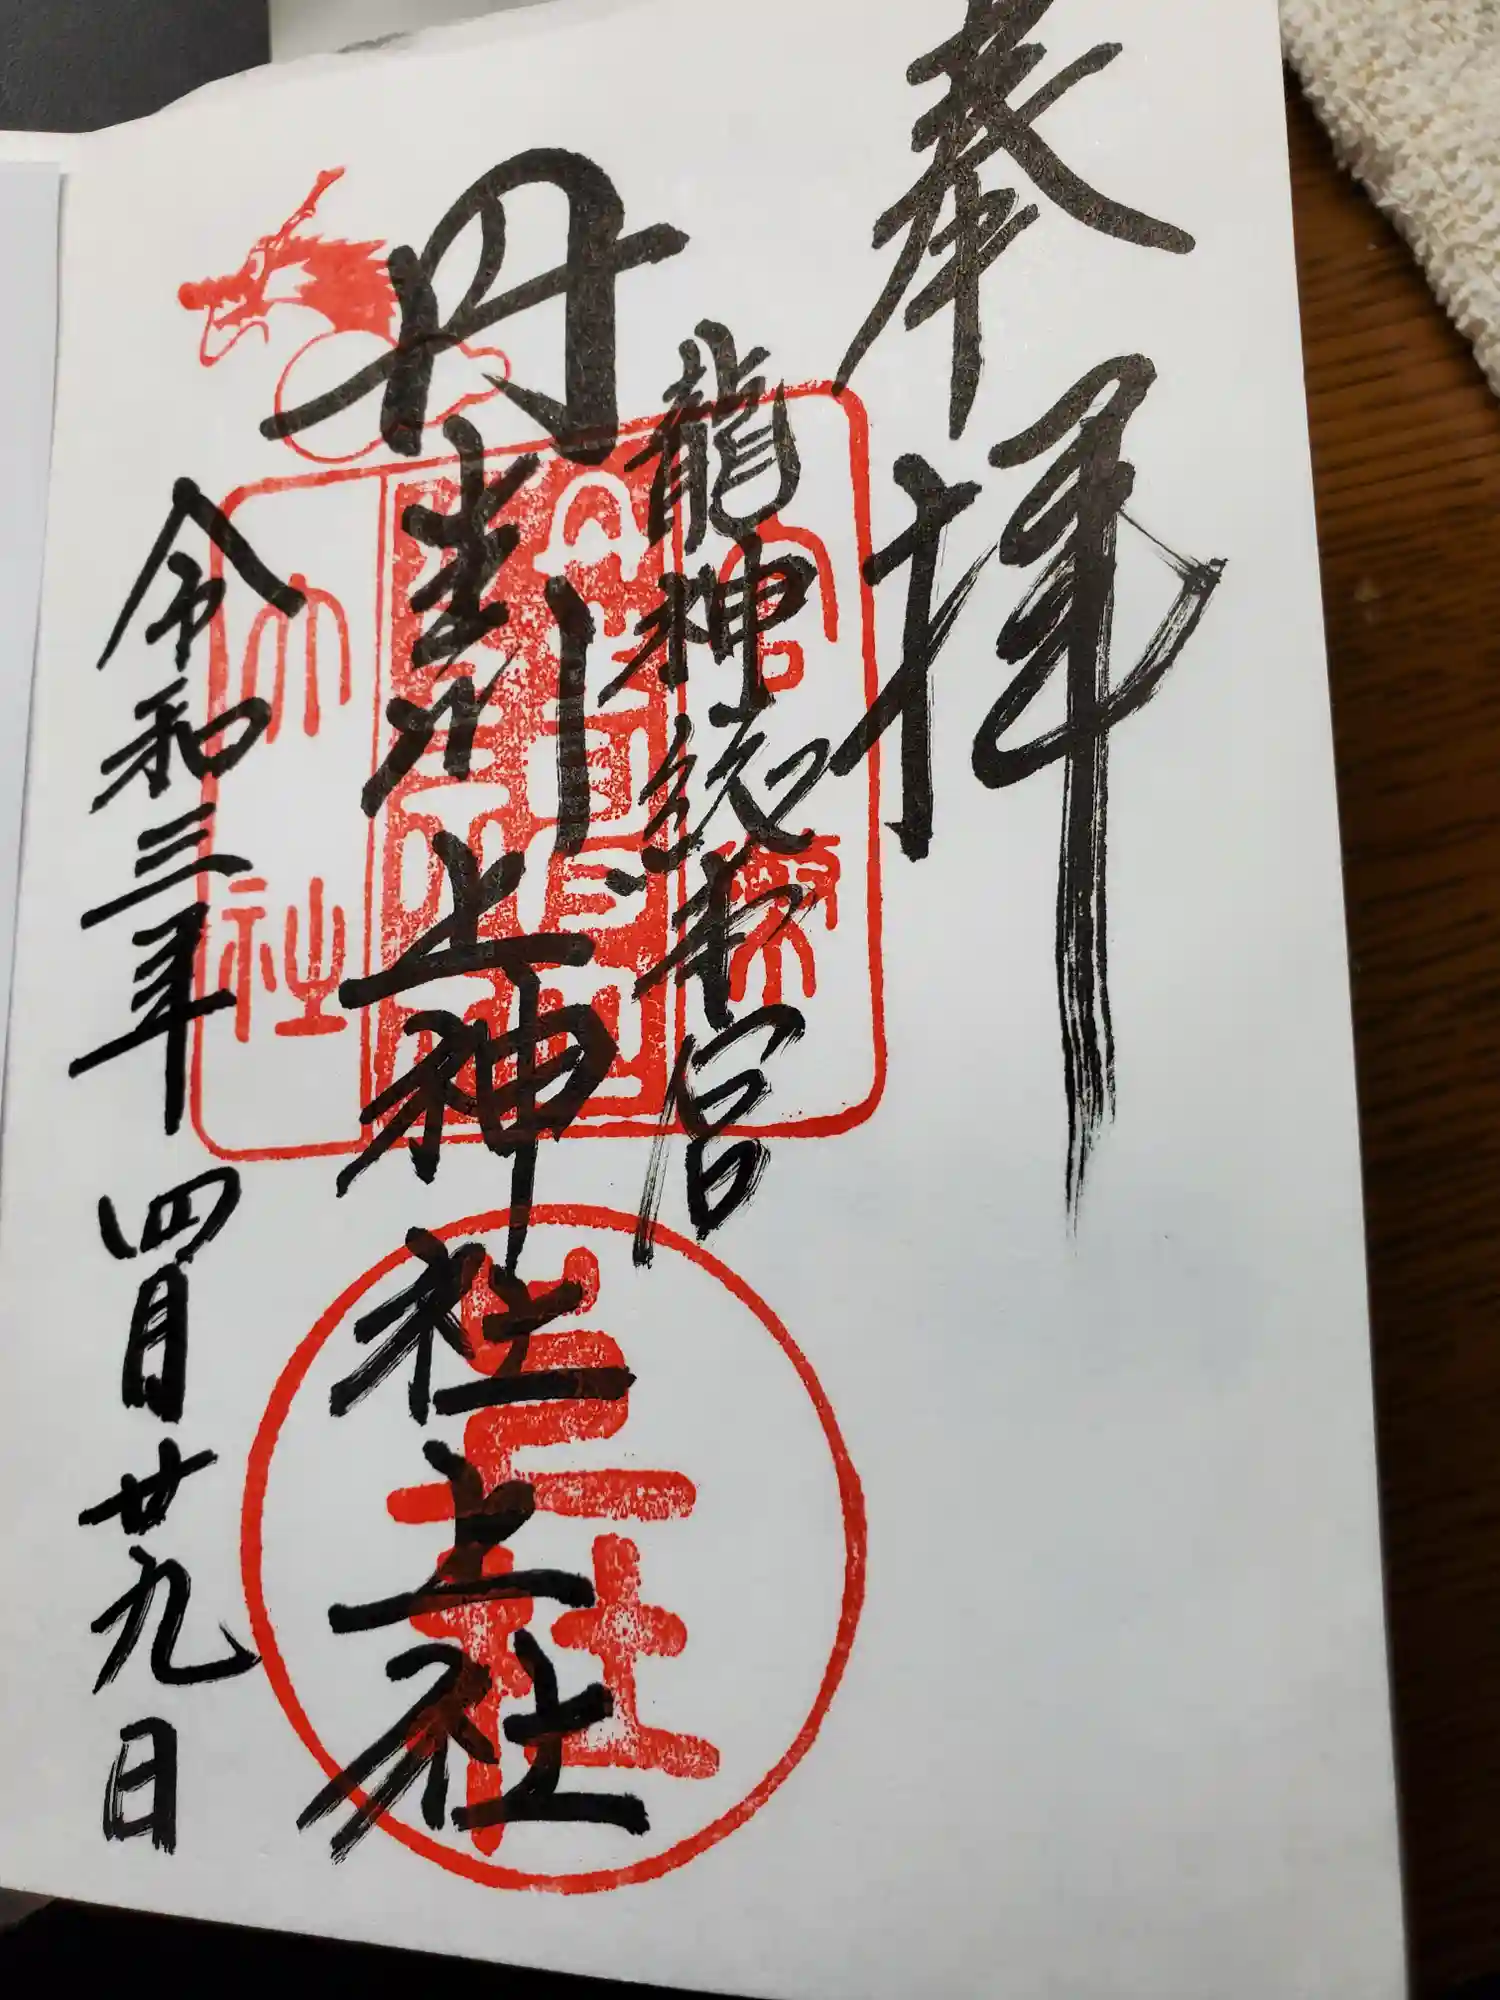 奉拝
龍神総本宮
丹生川上神社上社
令和三年四月廿九日
上社